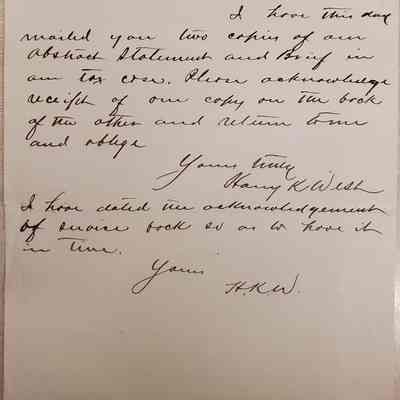 I have this day
mailed you two copies of our
Abstract Statement and Brief in
our tax case. Please acknowledge
receipt of one copy on the back
of the other and return to me
and oblige
Yours truly
Harry K West
I have dated the acknowledgement
of service back so as to have it
in time.
Yours
H.K.W.